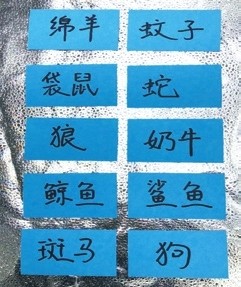 绵羊 蚊子
袋鼠 蛇
狼 奶牛
鲸鱼 鲨鱼
斑马 狗